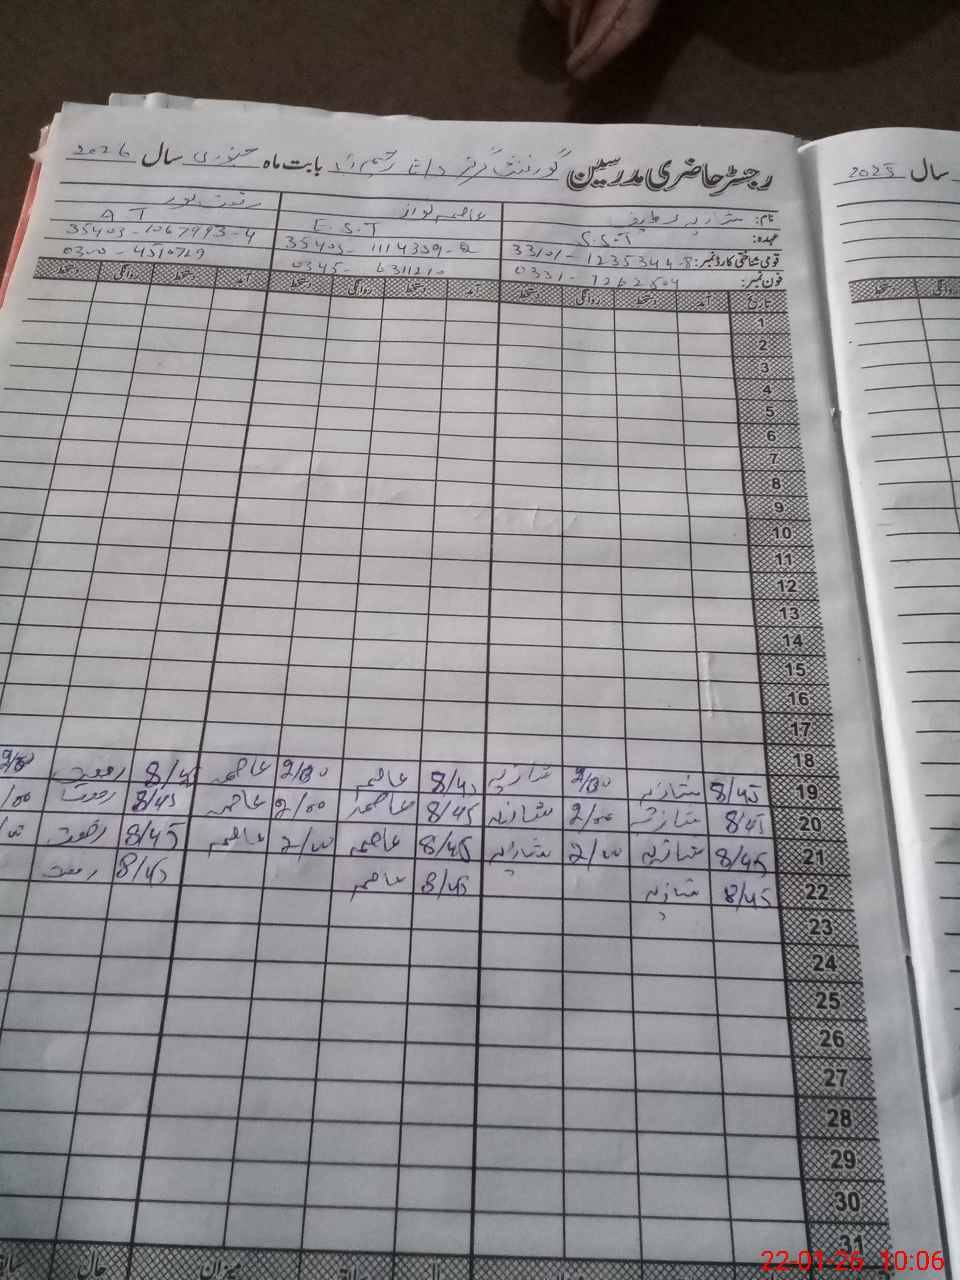 رجسٹر حاضری مدرسین گورنمنٹ گرلز بابت ماہ جنوری سال 2026
سال 2025
نام: شازیہ عاصمہ نواز
عہدہ: S.S.T E.S.T A T
قومی شناختی کارڈ نمبر: 33101-1235344-8 35403-1114339-2 35403-1067993-4
فون نمبر: 0331-7262504 0345-6311210 0300-4510729
تاریخ آمد دستخط روانگی دستخط آمد دستخط روانگی دستخط آمد دستخط روانگی دستخط
روانگی دستخط
1
2
3
4
5
6
7
8
9
10
11
12
13
14
15
16
17
18
19 8/45 شازیہ 2/00 شازیہ 8/45 عاصمہ 2/00 عاصمہ 8/45 رفعت 2/00
20 8/45 شازیہ 2/00 شازیہ 8/45 عاصمہ 2/00 عاصمہ 8/45 رفعت /00
21 8/45 شازیہ 2/00 شازیہ 8/45 عاصمہ 2/00 عاصمہ 8/45 رفعت /00
22 8/45 شازیہ 8/45 عاصمہ 8/45 رفعت
23
24
25
26
27
28
29
30
31
میزان حال
22-01-26 10:06